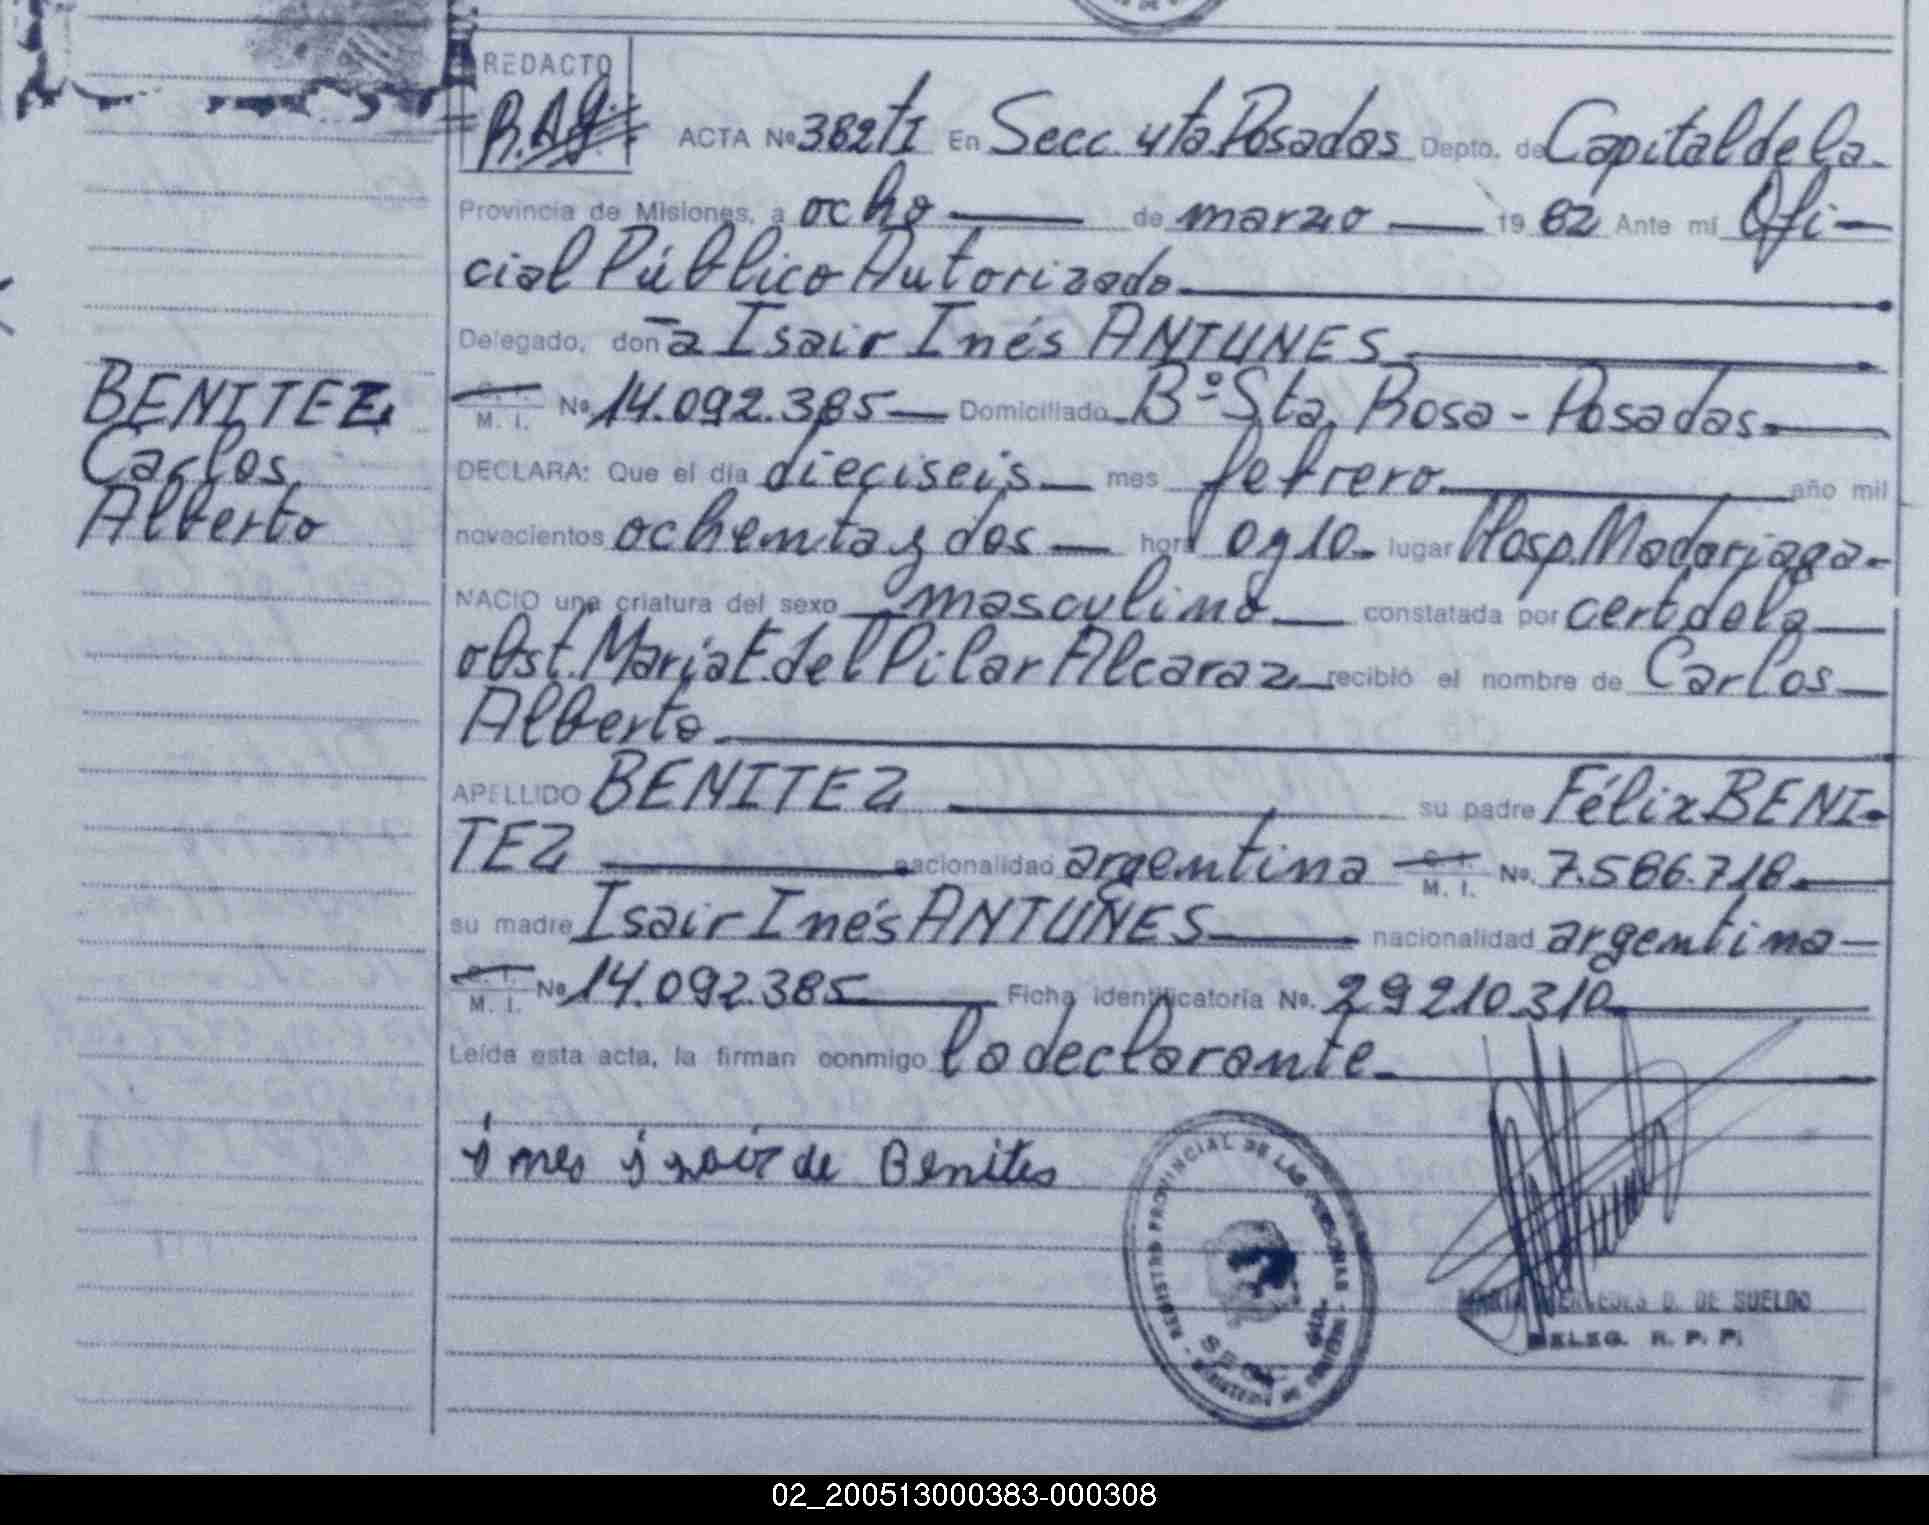 REDACTO
R.A.G.
ACTA Nº 382 tI En Secc. 4ta Posadas Depto. de Capital de la
Provincia de Misiones, a ocho de marzo 1982 Ante mí Ofi-
cial Público Autorizado
Delegado, doña Isair Inés ANTUNES
C. I.
M. I. Nº 14.092.385 Domiciliado Bº Sta. Rosa - Posadas
BENITEZ
Carlos
Alberto
DECLARA: Que el día dieciseis mes febrero año mil
novecientos ochenta y dos hora 09 10 lugar Hosp. Madariaga
NACIO una criatura del sexo masculino constatada por cert de la
obst. María E. del Pilar Alcaraz recibió el nombre de Carlos
Alberto
APELLIDO BENITEZ su padre Félix BENI-
TEZ nacionalidad argentina C. I. M. I. Nº. 7.586.718
su madre Isair Inés ANTUNES nacionalidad argentina
C. I.
M. I. Nº 14.092.385 Ficha identificatoria Nº. 29210310
Leída esta acta, la firman conmigo la declarante
ines isair de Benites
REGISTRO PROVINCIAL DE LAS PERSONAS - MINISTERIO DE GOBIERNO
SECC. 4TA.
MARIA MERCEDES D. DE SUELDO
DELEG. R. P. P.
02_200513000383-000308